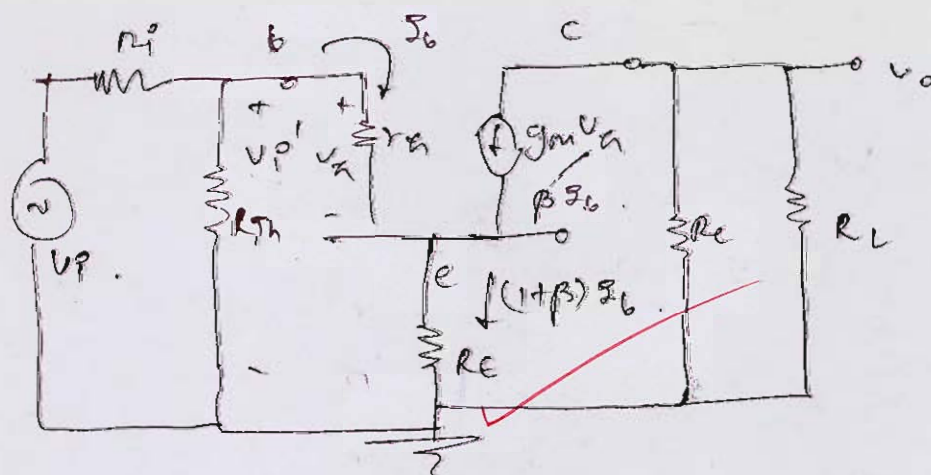 Ri b Ib C
vo
+ + vi' vπ rπ gm vπ
β Ib
RTh Rc RL
vi
- e (1+β) Ib
- RE